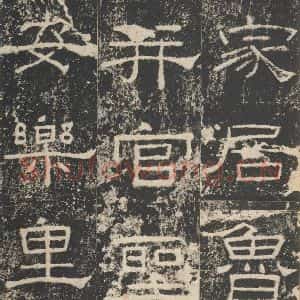 家居魯
并官聖
安樂里